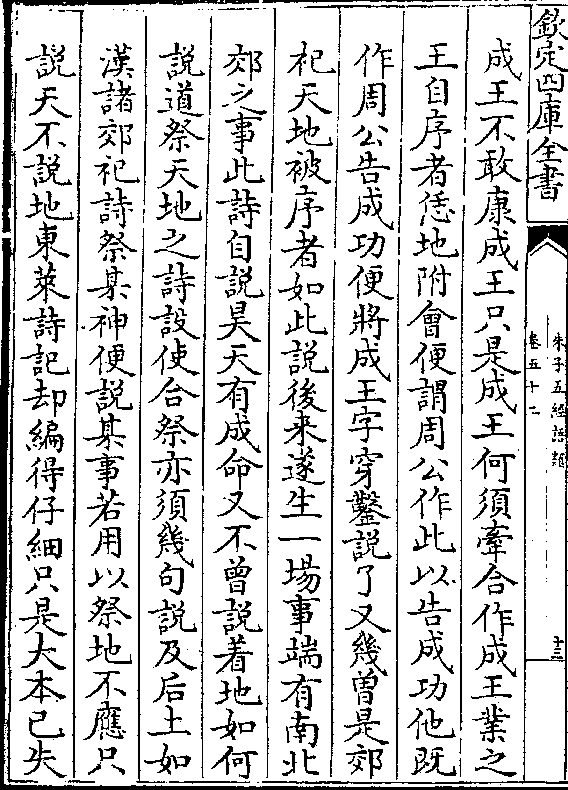 欽定四庫全書
朱子五經語類
卷五十二
十三
成王不敢康成王只是成王何須牽合作成王業之
王自序者恁地附會便謂周公作此以告成功他既
作周公告成功便將成王字穿鑿說了又幾曽是郊
祀天地被序者如此說後来遂生一場事端有南北
郊之事此詩自說昊天有成命又不曾說着地如何
說道祭天地之詩設使合祭亦須幾句說及后土如
漢諸郊祀詩祭某神便說某事若用以祭地不應只
說天不說地東萊詩記却編得仔細只是大本已失